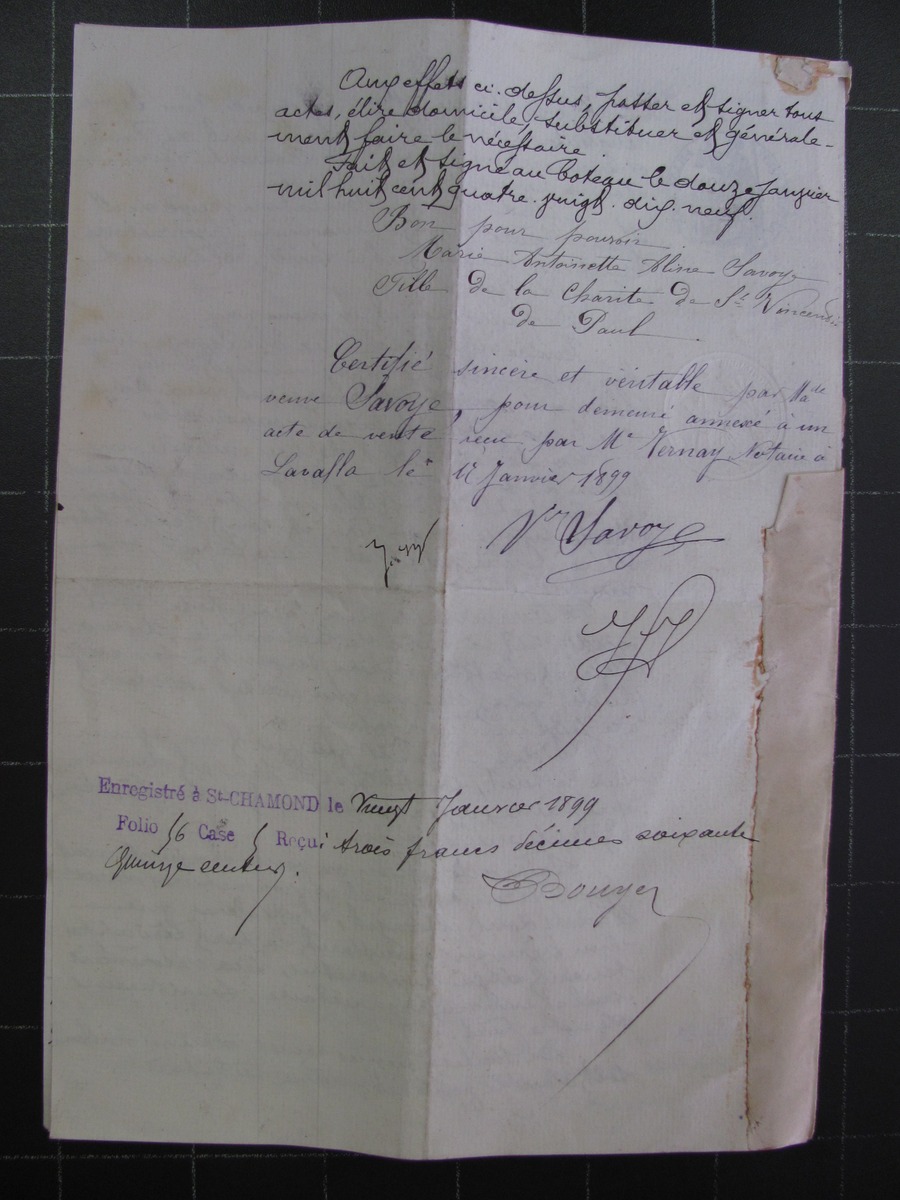 Aux effets ci-dessus, passer et signer tous
actes, élire domicile, substituer et générale-
ment faire le nécessaire.
Fait et signé au Coteau le douze Janvier
mil huit cent quatre-vingt-dix-neuf.
Bon pour pouvoir
Marie Antoinette Aline Savoye
Fille de la Charité de St Vincent
de Paul
Certifié sincère et véritable par Made
veuve Savoye, pour demeuré annexé à un
acte de vente reçu par Me Vernay Notaire à
Lavalla le 12 Janvier 1899
Vve Savoye
Enregistré à St-CHAMOND le Vingt Janvier 1899
Folio 56 Case 5 Reçu: trois francs décimes soixante
Quinze centes.